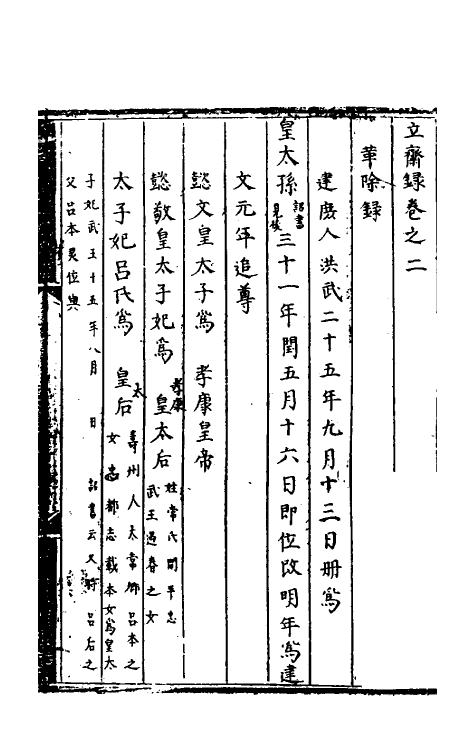 立齋錄卷之二
革除錄
建庶人洪武二十五年九月十三日册爲
皇太孫詔書見後三十一年閏五月十六日即位改明年爲建
文元年追尊
懿文皇太子爲 孝康皇帝
懿敬皇太子妃爲 孝康皇太后姓常氏開平忠武王遇春之女
太子妃呂氏爲 皇太后壽州人太常卿呂本之女 都志載本女爲皇太
子妃武王十五年八月 日 詔書云 呂后之
父呂本 位與